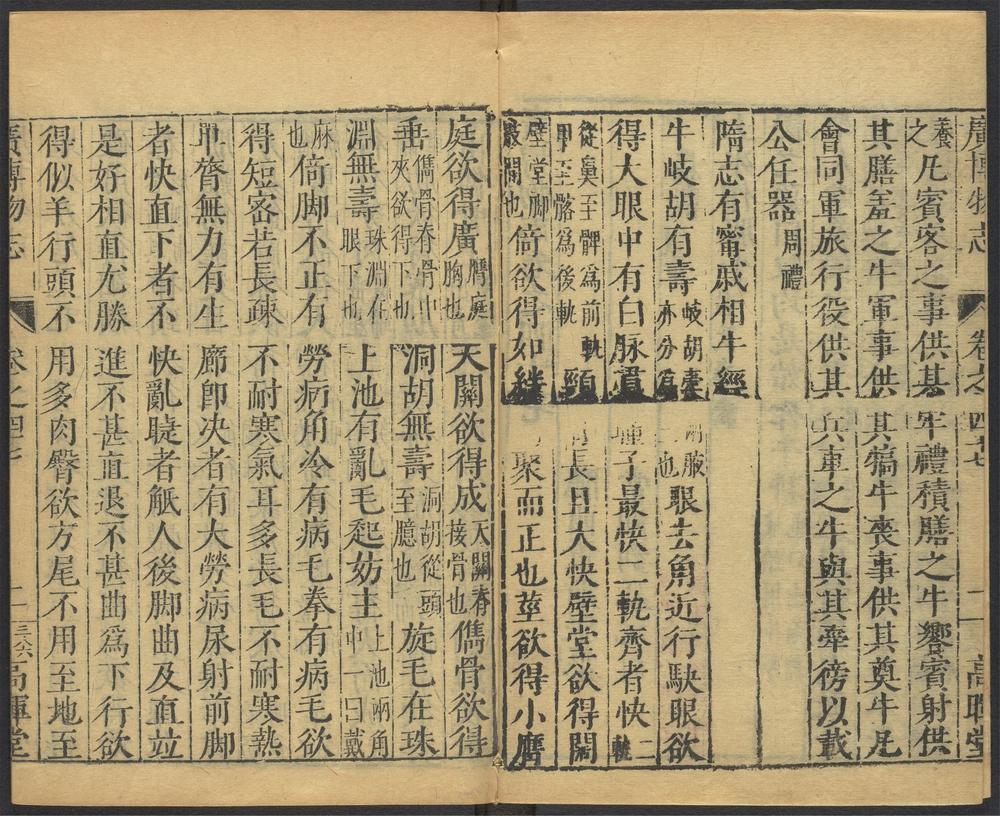 廣博物志 卷之四七 二 高暉堂
養之凡賓客之事供其牢禮積膳之牛饗賓射供
其膳羞之牛軍事供其犒牛喪事供其奠牛凡
會同軍旅行役供其兵車之牛與其牽徬以載
公任器周禮
隋志有甯戚相牛經
牛岐胡有壽岐胡兩腋亦分爲也眼去角近行駃眼欲
得大眼中有白脉貫瞳子最快二軌齊者快二軌
從鼻至髀爲前軌甲至髂爲後軌頸長且大快壁堂欲得闊
壁堂脚也倚欲得如絆聚而正也莖欲得小膺
庭欲得廣膺庭胸也天關欲得成天關脊接骨也儁骨欲得
垂儁骨脊骨中夾欲得下也洞胡無壽洞胡從頭至臆也旋毛在珠
淵無壽珠淵在眼下也上池有亂毛起妨主上池兩角中一曰戴
麻也倚脚不正有勞病角冷有病毛拳有病毛欲
得短密若長疎不耐寒氣耳多長毛不耐寒熱
單膂無力有生癤卽决者有大勞病尿射前脚
者快直下者不快亂睫者觝人後脚曲及直竝
是好相直尤勝進不甚直退不甚曲爲下行欲
得似羊行頭不用多肉臀欲方尾不用至地至
廣博物志 卷之四七 三六六 高暉堂